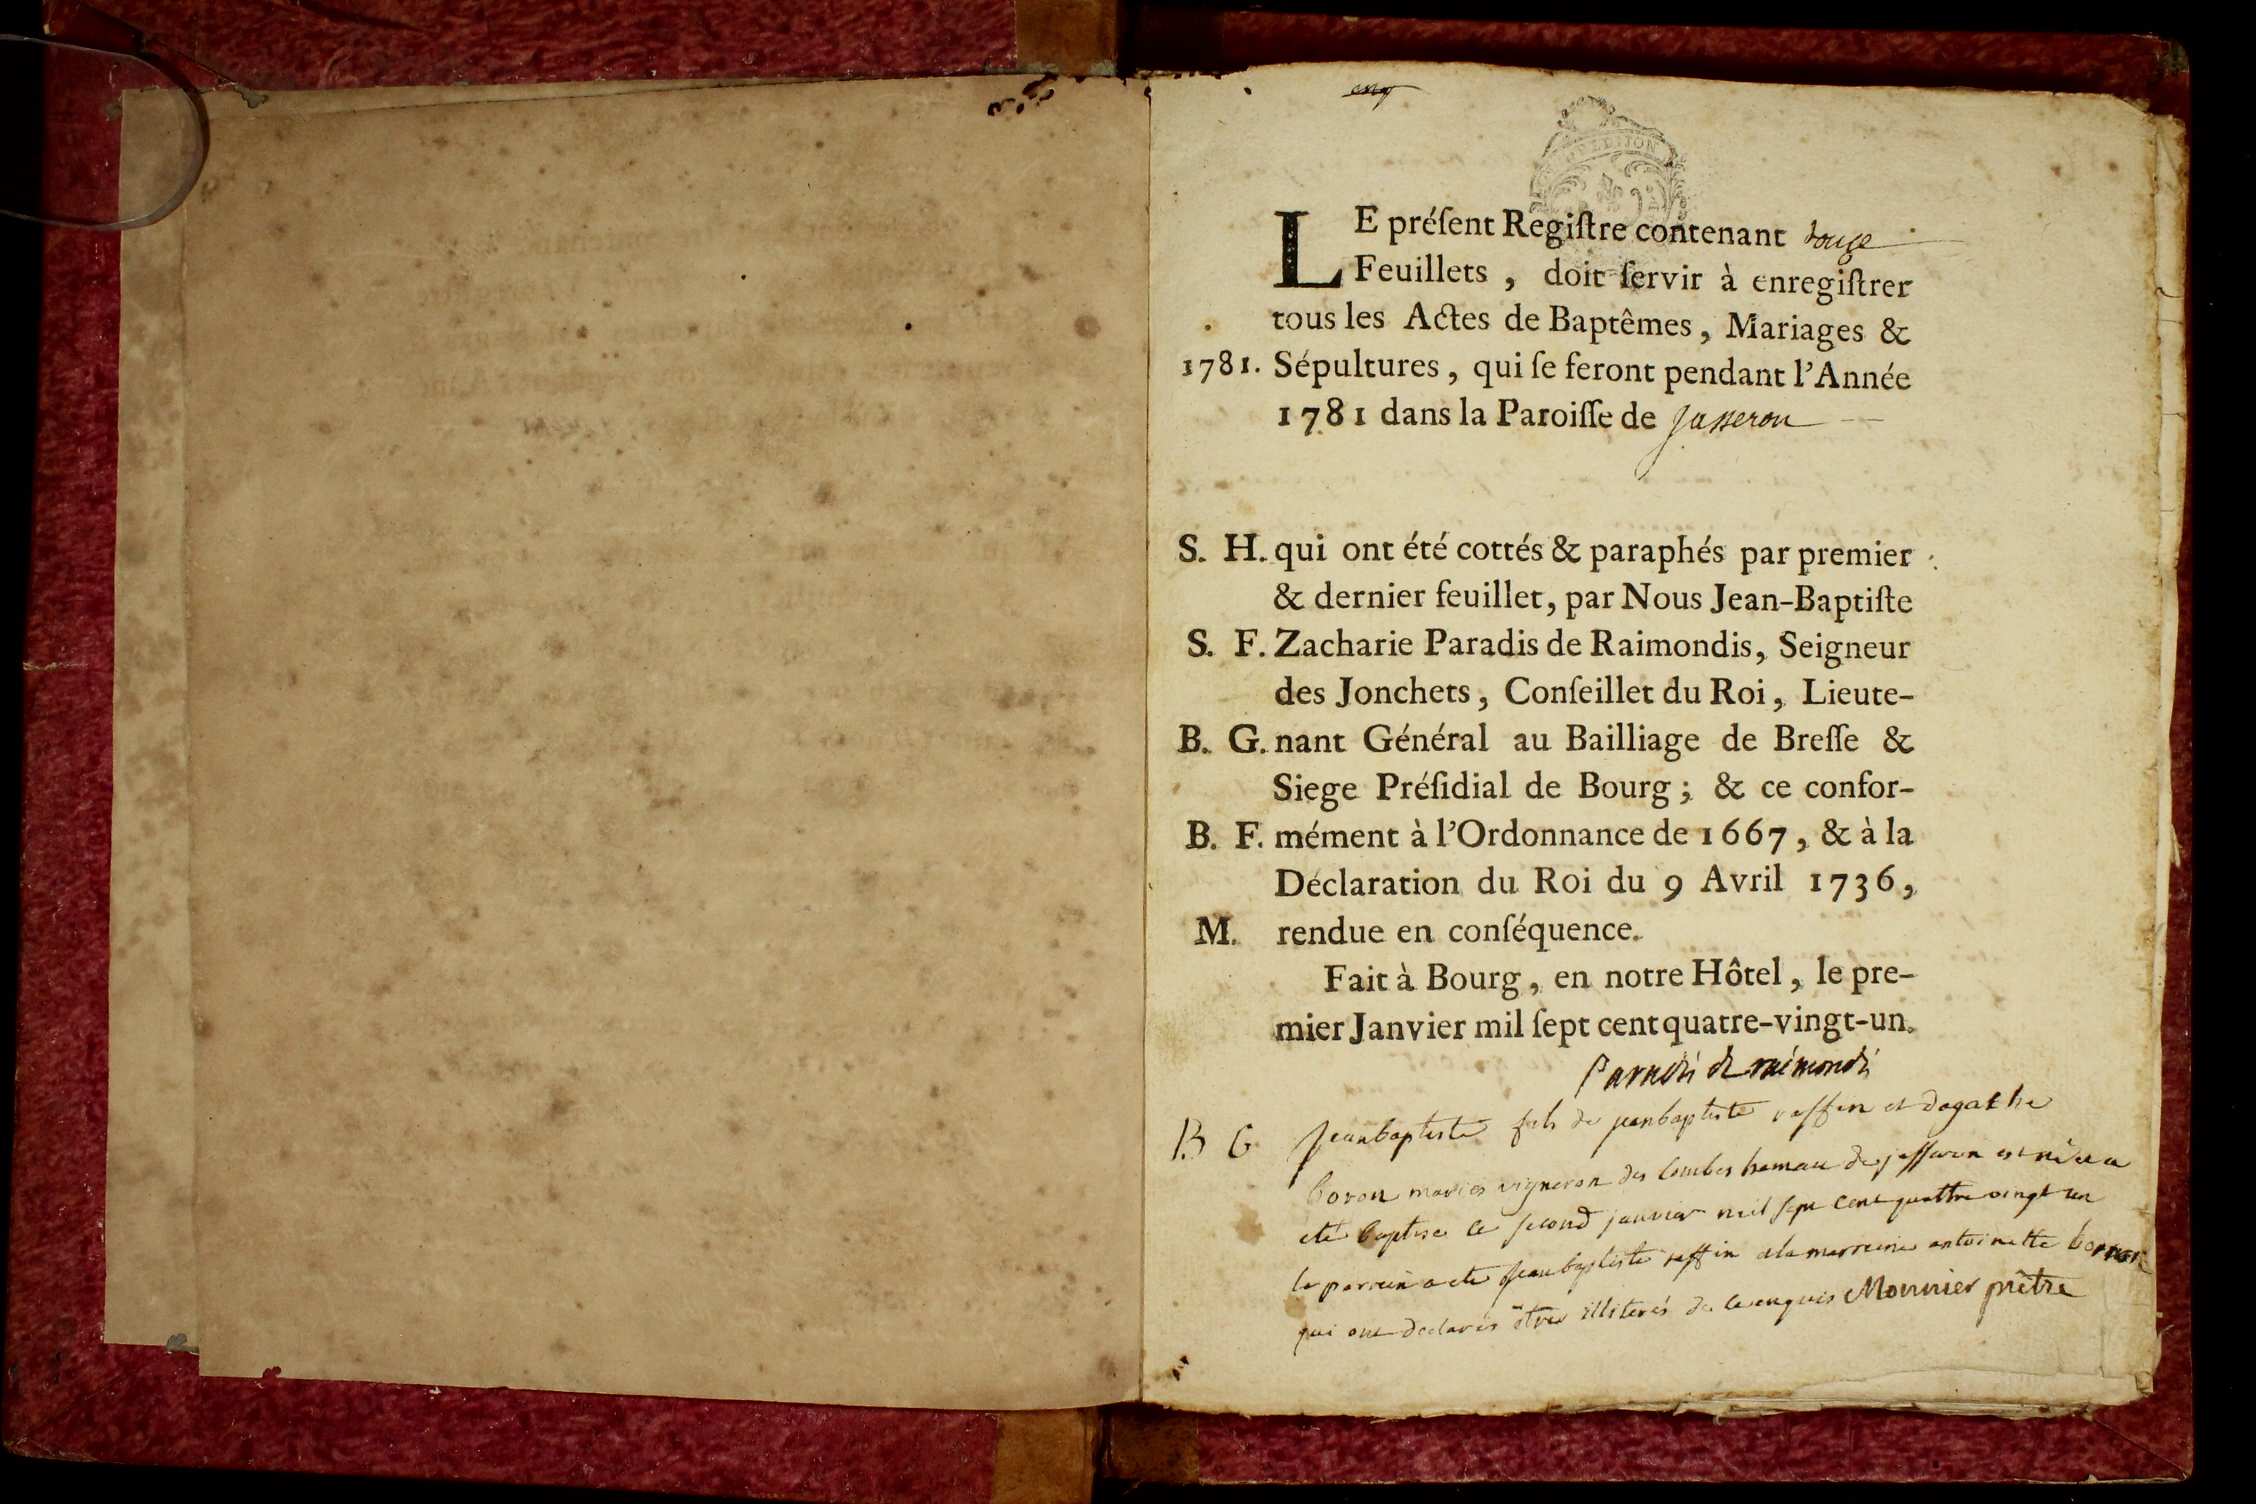 DIJON
LE préſent Regiſtre contenant douze
Feuillets, doit ſervir à enregiſtrer
tous les Actes de Baptêmes, Mariages &
1781. Sépultures, qui ſe feront pendant l'Année
1781 dans la Paroiſſe de Jasseron
S. H. qui ont été cottés & paraphés par premier
& dernier feuillet, par Nous Jean-Baptiſte
S. F. Zacharie Paradis de Raimondis, Seigneur
des Jonchets, Conſeillet du Roi, Lieute-
B. G. nant Général au Bailliage de Breſſe &
Siege Préſidial de Bourg; & ce confor-
B. F. mément à l'Ordonnance de 1667, & à la
Déclaration du Roi du 9 Avril 1736,
M. rendue en conſéquence.
Fait à Bourg, en notre Hôtel, le pre-
mier Janvier mil ſept cent quatre-vingt-un.
Paradis de raimondi
B G Jeanbaptiste fils de jeanbaptiste raffin et dagathe
mariés vigneron des Combes hameau de jasseron est né et a
eté baptise ce second janvier mil sept cent quattre vingt un
le parrein a eté Jeanbaptiste raffin et la marreine antoinette
qui ont declarés être illiterés de ce enquis Monnier prêtre